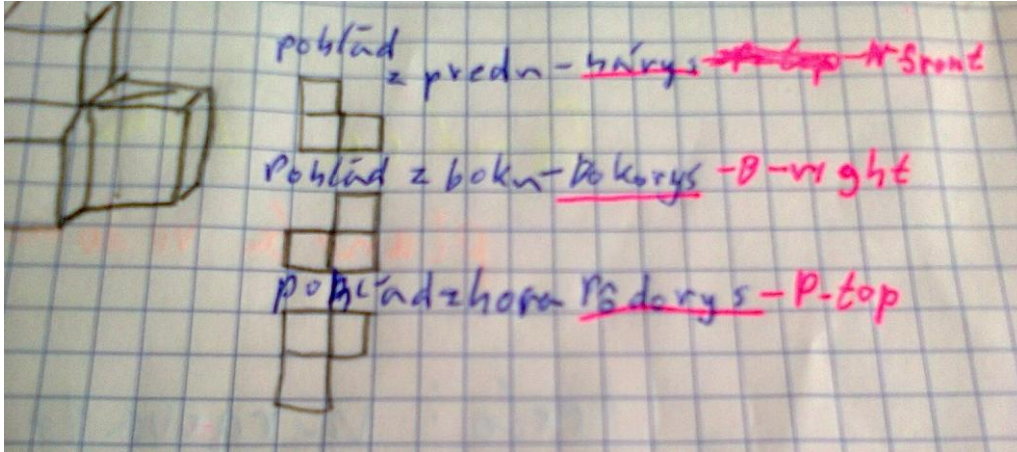 pohlád
z predu - nárys - N-front
Pohlád z boku - Bokorys - B - right
pohlád zhora Pôdorys - P-top